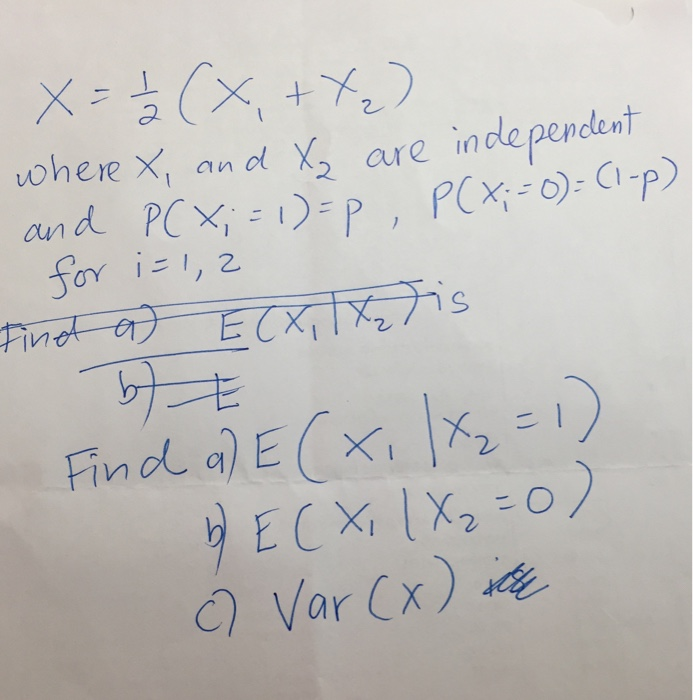 X = 1/2 (X₁ + X₂)
where X₁ and X₂ are independent
and P(Xᵢ = 1) = p , P(Xᵢ = 0) = (1-p)
for i = 1, 2
Find a) E(X₁ | X₂) is
b) E
Find a) E(X₁ | X₂ = 1)
b) E(X₁ | X₂ = 0)
c) Var(X)